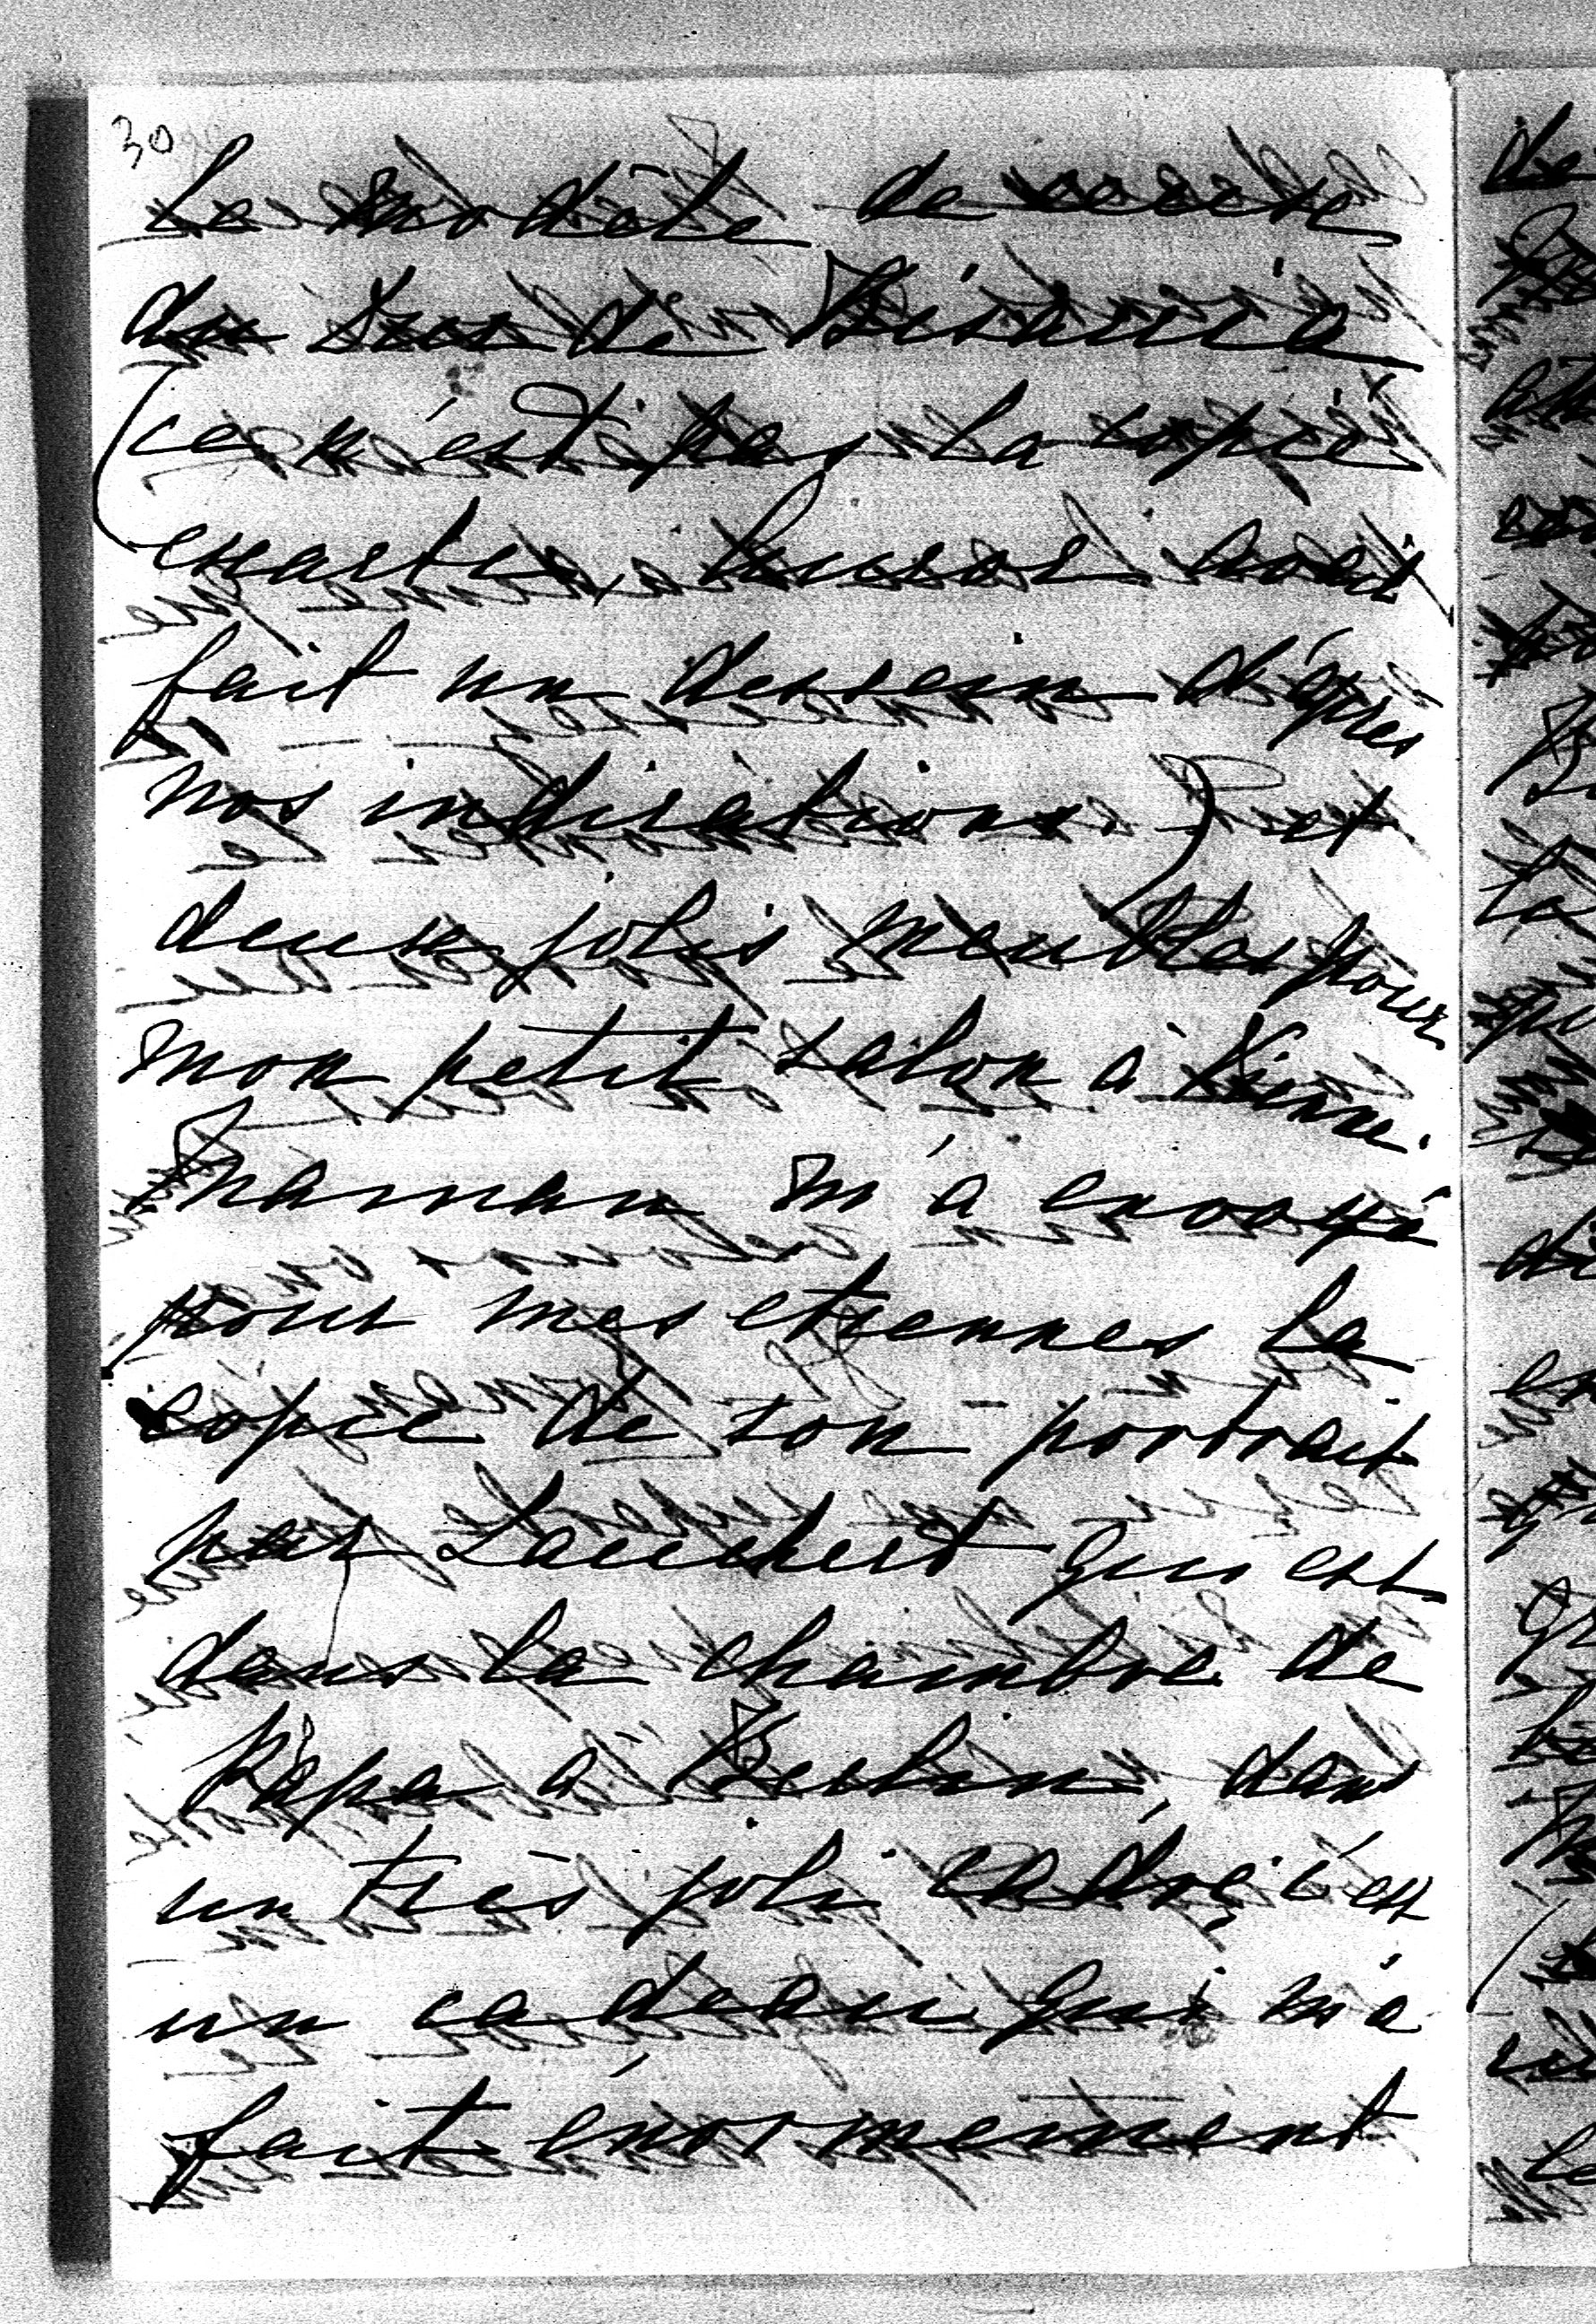 30
Le modèle de
du de Bisaccia
(ce n'est pas la copie
exacte, avait
fait un dessein d'après
nos indications) et
deux jolis meubles pour
mon petit salon à
Maman m'a envoyé
pour mes etrennes la
copie de son portrait
par Lauchert qui est
dans la chambre de
Papa à Berlin, dans
un très joli cadre, c'est
un cadeau qui m'a
fait énormement